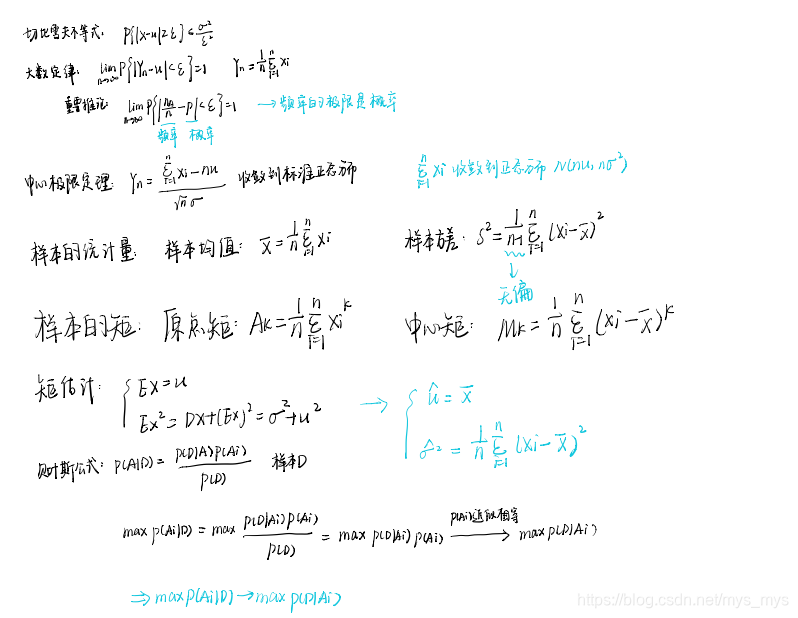 切比雪夫不等式: P{|x-u|≥ε}≤σ²/ε²
大数定律: lim n→∞ P{|Yn-u|<ε}=1 Yn=1/n Σ(i=1..n) xi
重要推论: lim n→∞ P{|nu/n-p|<ε}=1 → 频率的极限是概率
频率 概率
中心极限定理: Yn=(Σ(i=1..n) xi-nu)/(√n σ) 收敛到标准正态分布 Σ(i=1..n) xi 收敛到正态分布 N(nu, nσ²)
样本的统计量: 样本均值: x̄=1/n Σ(i=1..n) xi 样本方差: S²=1/(n-1) Σ(i=1..n) (xi-x̄)²
↓
无偏
样本的矩: 原点矩: Ak=1/n Σ(i=1..n) xi^k 中心矩: Mk=1/n Σ(i=1..n) (xi-x̄)^k
矩估计: { Ex=u → { û=x̄
Ex²=Dx+(Ex)²=σ²+u² σ̂²=1/n Σ(i=1..n) (xi-x̄)²
贝叶斯公式: P(A|D)=P(D|A)P(Ai)/P(D) 样本D
max P(Ai|D)=max P(D|Ai)P(Ai)/P(D)=max P(D|Ai)P(Ai) P(Ai)近似相等→ max P(D|Ai)
⇒ max P(Ai|D)→max P(D|Ai)
https://blog.csdn.net/mys_mys